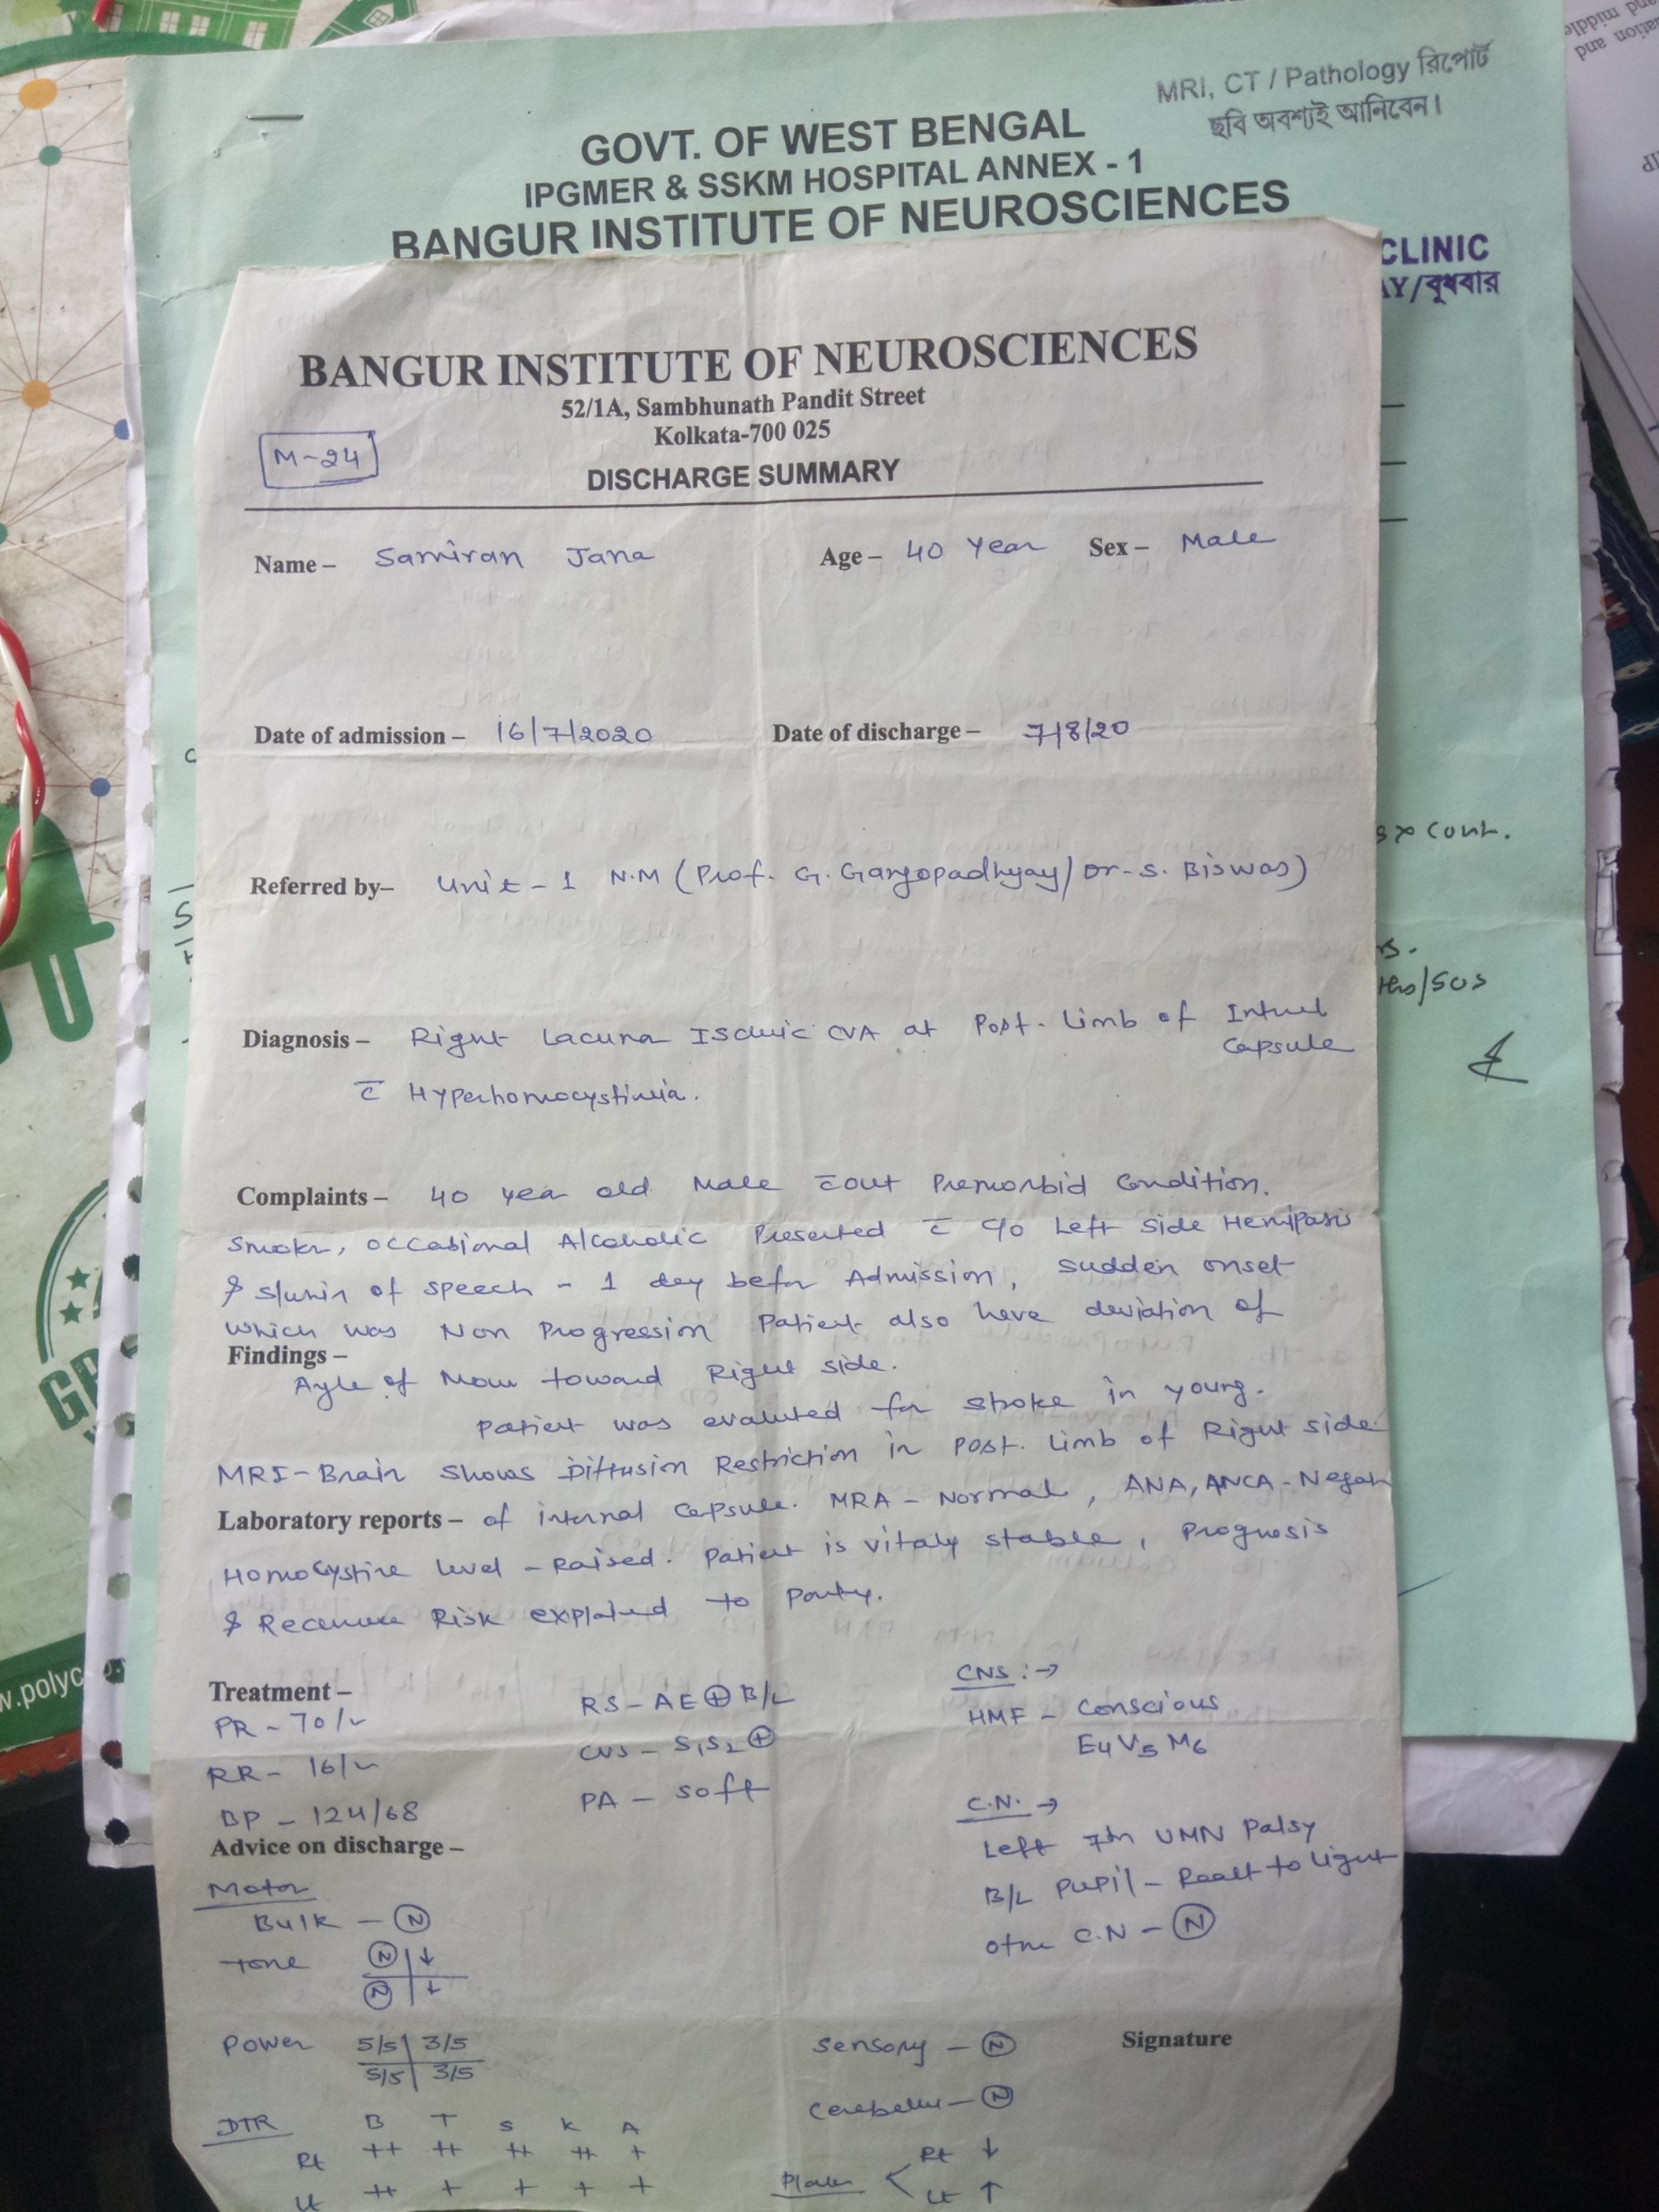 MRI, CT / Pathology রিপোর্ট
ছবি অবশ্যই আনিবেন।
GOVT. OF WEST BENGAL
IPGMER & SSKM HOSPITAL ANNEX - 1
BANGUR INSTITUTE OF NEUROSCIENCES
CLINIC
AY/বুধবার
BANGUR INSTITUTE OF NEUROSCIENCES
52/1A, Sambhunath Pandit Street
Kolkata-700 025
M-24
DISCHARGE SUMMARY
Name – Samiran Jana Age – 40 Year Sex – Male
Date of admission – 16/7/2020 Date of discharge – 7/8/20
cont.
Referred by– Unit - 1 N.M (Prof. G. Gangopadhyay/Dr-S. Biswas)
/SOS
Diagnosis – Right Lacuna CVA at Post. limb of
Capsule
c̄
Complaints – 40 year old Male c̄out Premorbid Condition.
occasional Alcoholic Presented c̄ c/o Left side
& of speech - 1 day Admission, sudden onset
which was Non Progression Patient also have deviation of
Findings –
of toward Right side.
Patient was for stroke in young.
MRI-Brain shows Diffusion Restriction in Post. limb of Right side
Laboratory reports – of internal Capsule. MRA - Normal, ANA, ANCA -
level - Raised. Patient is vitaly stable, Prognosis
& Risk to Party.
Treatment –
PR - 70/
RR - 16/
BP - 124/68
RS - AE ⊕ B/L
CVS - S1S2 ⊕
PA - soft
CNS :→
HMF - Conscious
E4V5M6
C.N. →
Left 7th UMN Palsy
B/L Pupil - to light
C.N - N
Advice on discharge –
Motor
Bulk - N
Tone N ↓
N ↓
Power 5/5 3/5
5/5 3/5
Sensory - N
Signature
- N
DTR B T S K A
Rt ++ ++ ++ ++ +
Lt ++ + + + +
Rt ↓
Lt ↑